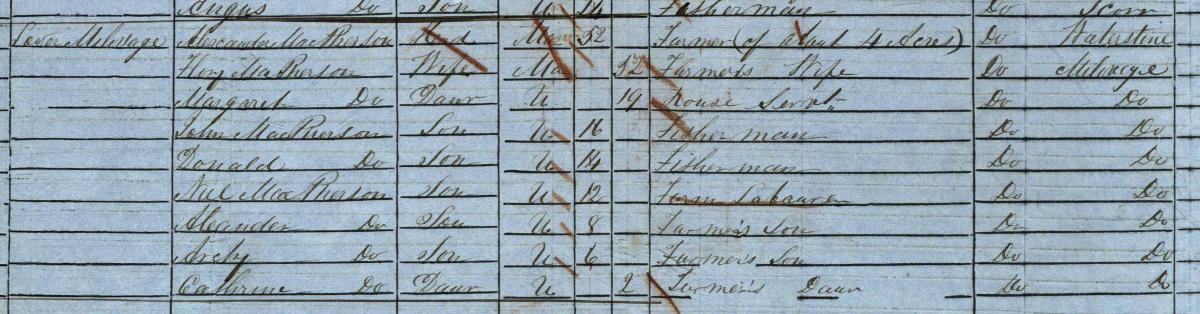 Angus Do Son U 14 Fisherman Do Scorr
Lower Milovage Alexander MacPherson Head Mar 52 Farmer (of about 4 Acres) Do Waterstine
MacPherson Wife Ma 52 Farmers Wife Do Milovege
Margaret Do Daur U 19 House Servt Do Do
John MacPherson Son U 16 Fisherman Do Do
Donald Do Son U 14 Fisherman Do Do
Niel MacPherson Son U 12 Farm Labourer Do Do
Aleander Do Son U 8 Farmers Son Do Do
Archy Do Son U 6 Farmers Son Do Do
Cathrine Do Daur U 2 Farmers Daur Do Do